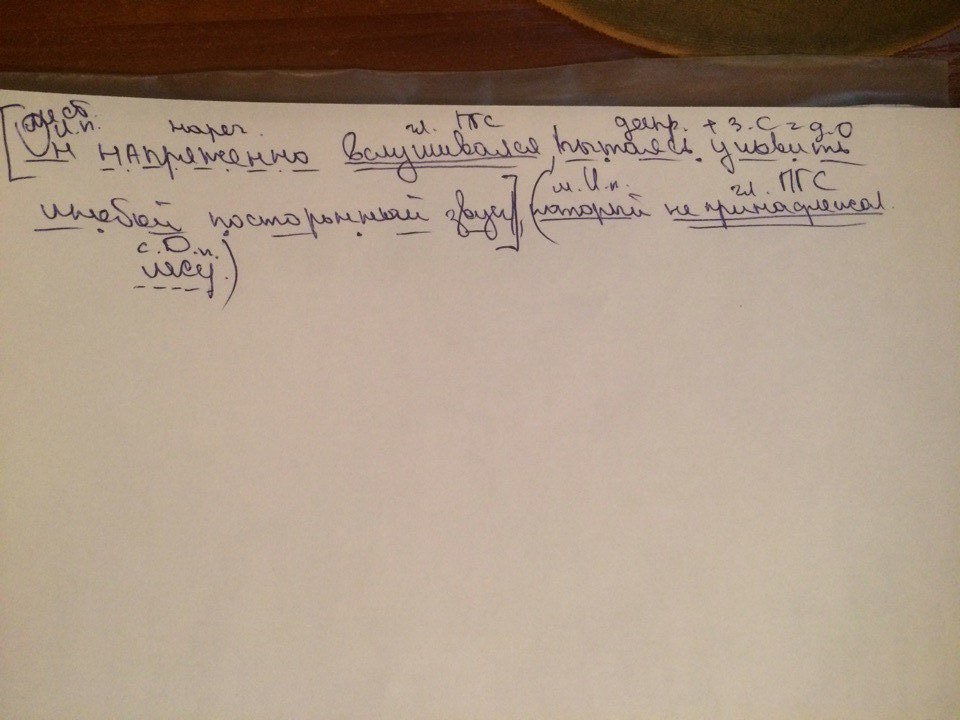 мест. нареч. гл. ПГС деепр. + З.С = Д.О
И.п.
[Он напряженно вслушивался, пытаясь уловить
м. И.п. гл. ПГС
любой посторонний звук], (который не принадлежал
с. Д.п.
лесу.)